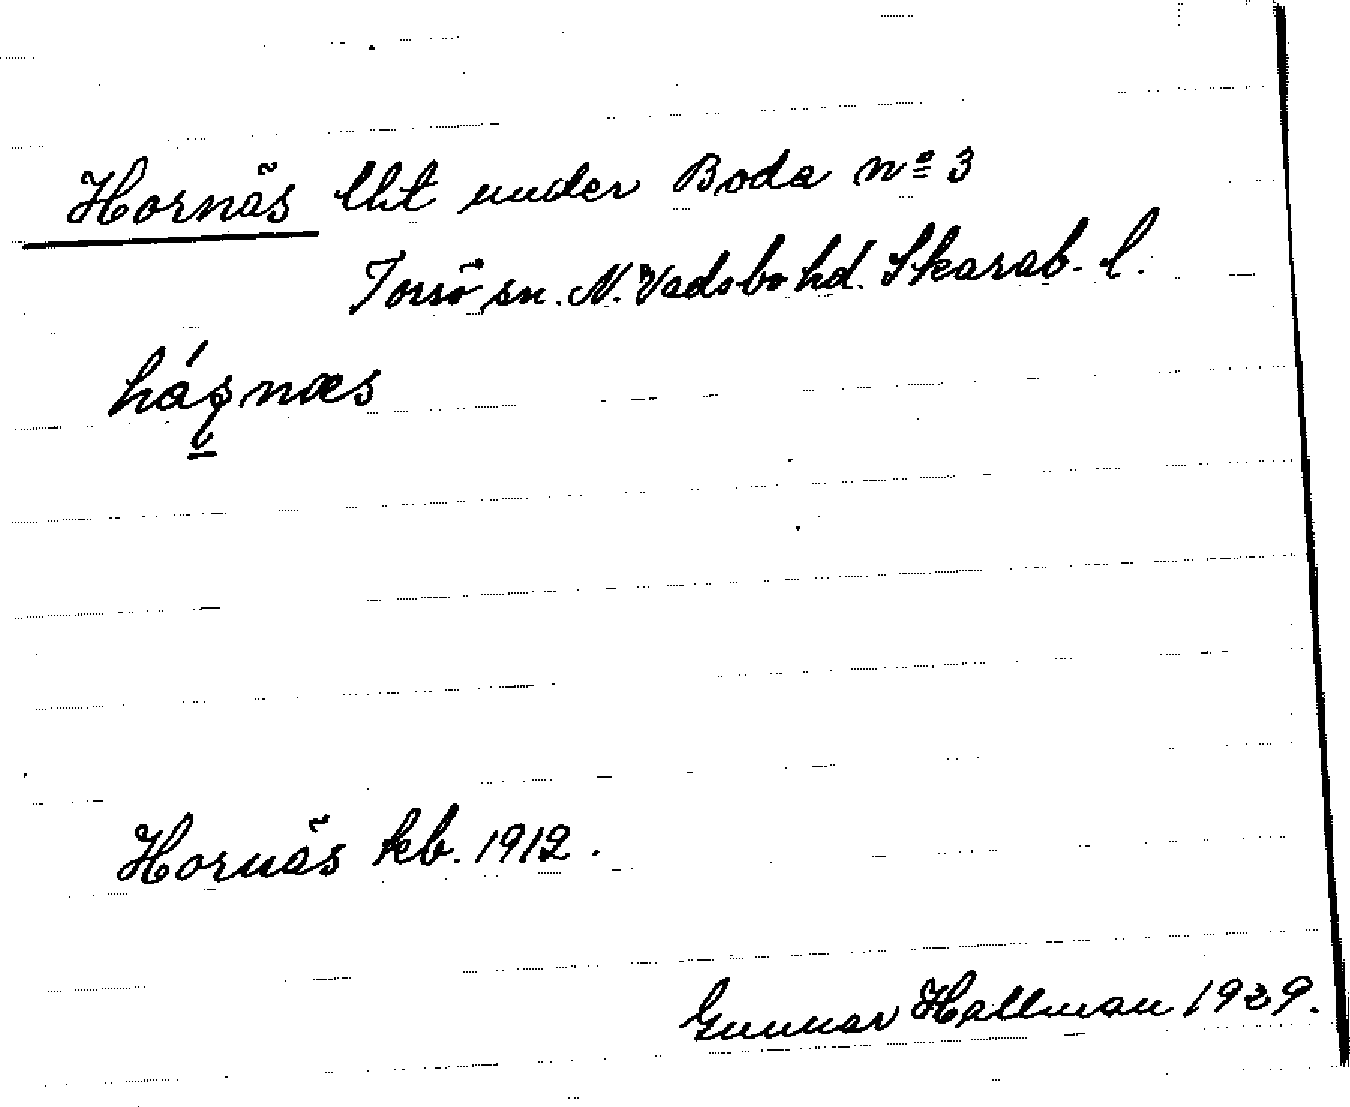 Hornäs lht under Boda nº 3
Torsö sn. N. Vadsbo hd. Skarab. l.
Hornäs kb. 1912.
Gunnar Hallman 1929.